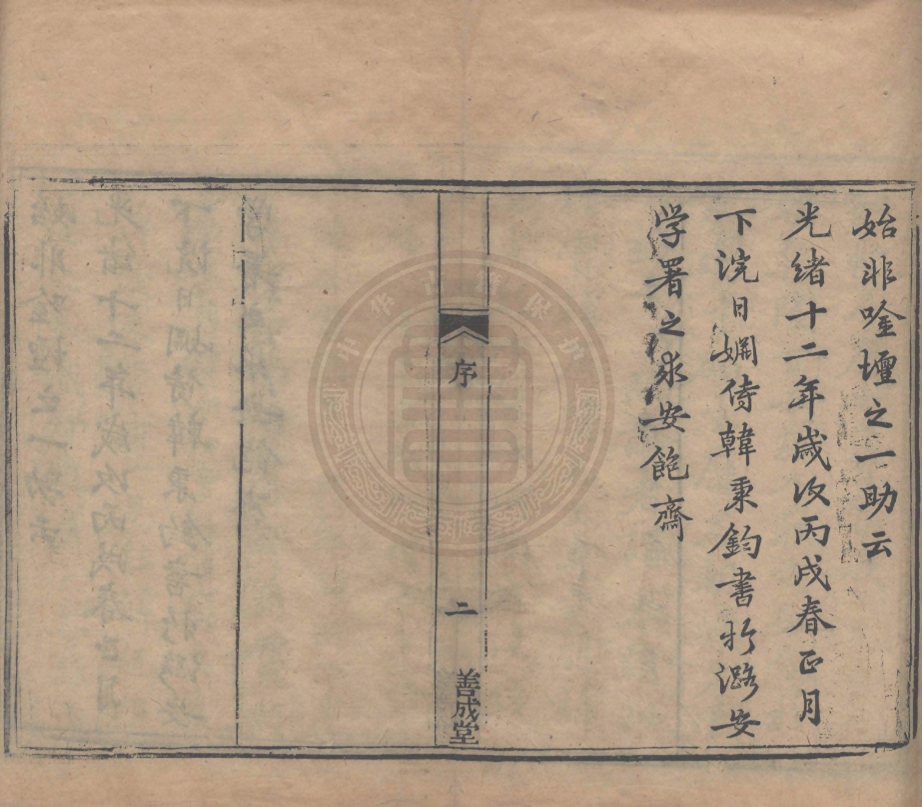 始非唫壇之一助云
光緒十二年歲次丙戌春正月
下浣日姻侍韓秉鈞書於潞安
学署之求安飽齋
序
二
善成堂